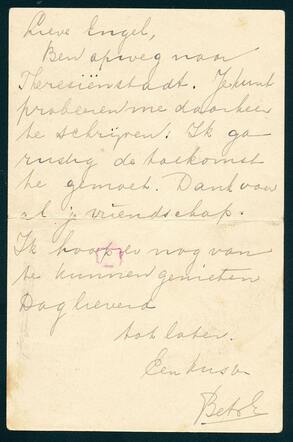 Lieve Engel,
Ben opweg naar
Theresiënstadt. Je kunt
proberen me daarheen
te schrijven! Ik ga
rustig de toekomst
te gemoet. Dank voor
al je vriendschap.
Ik hoop er nog van
te kunnen genieten
Dag lieverd
tot later.
Een kus v.